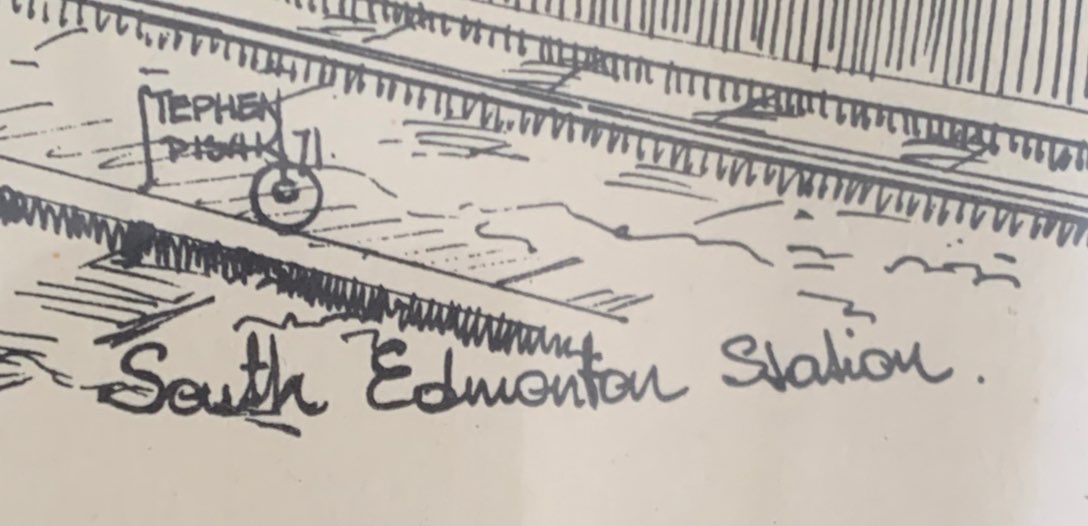 STEPHEN
71.
South Edmonton Station.